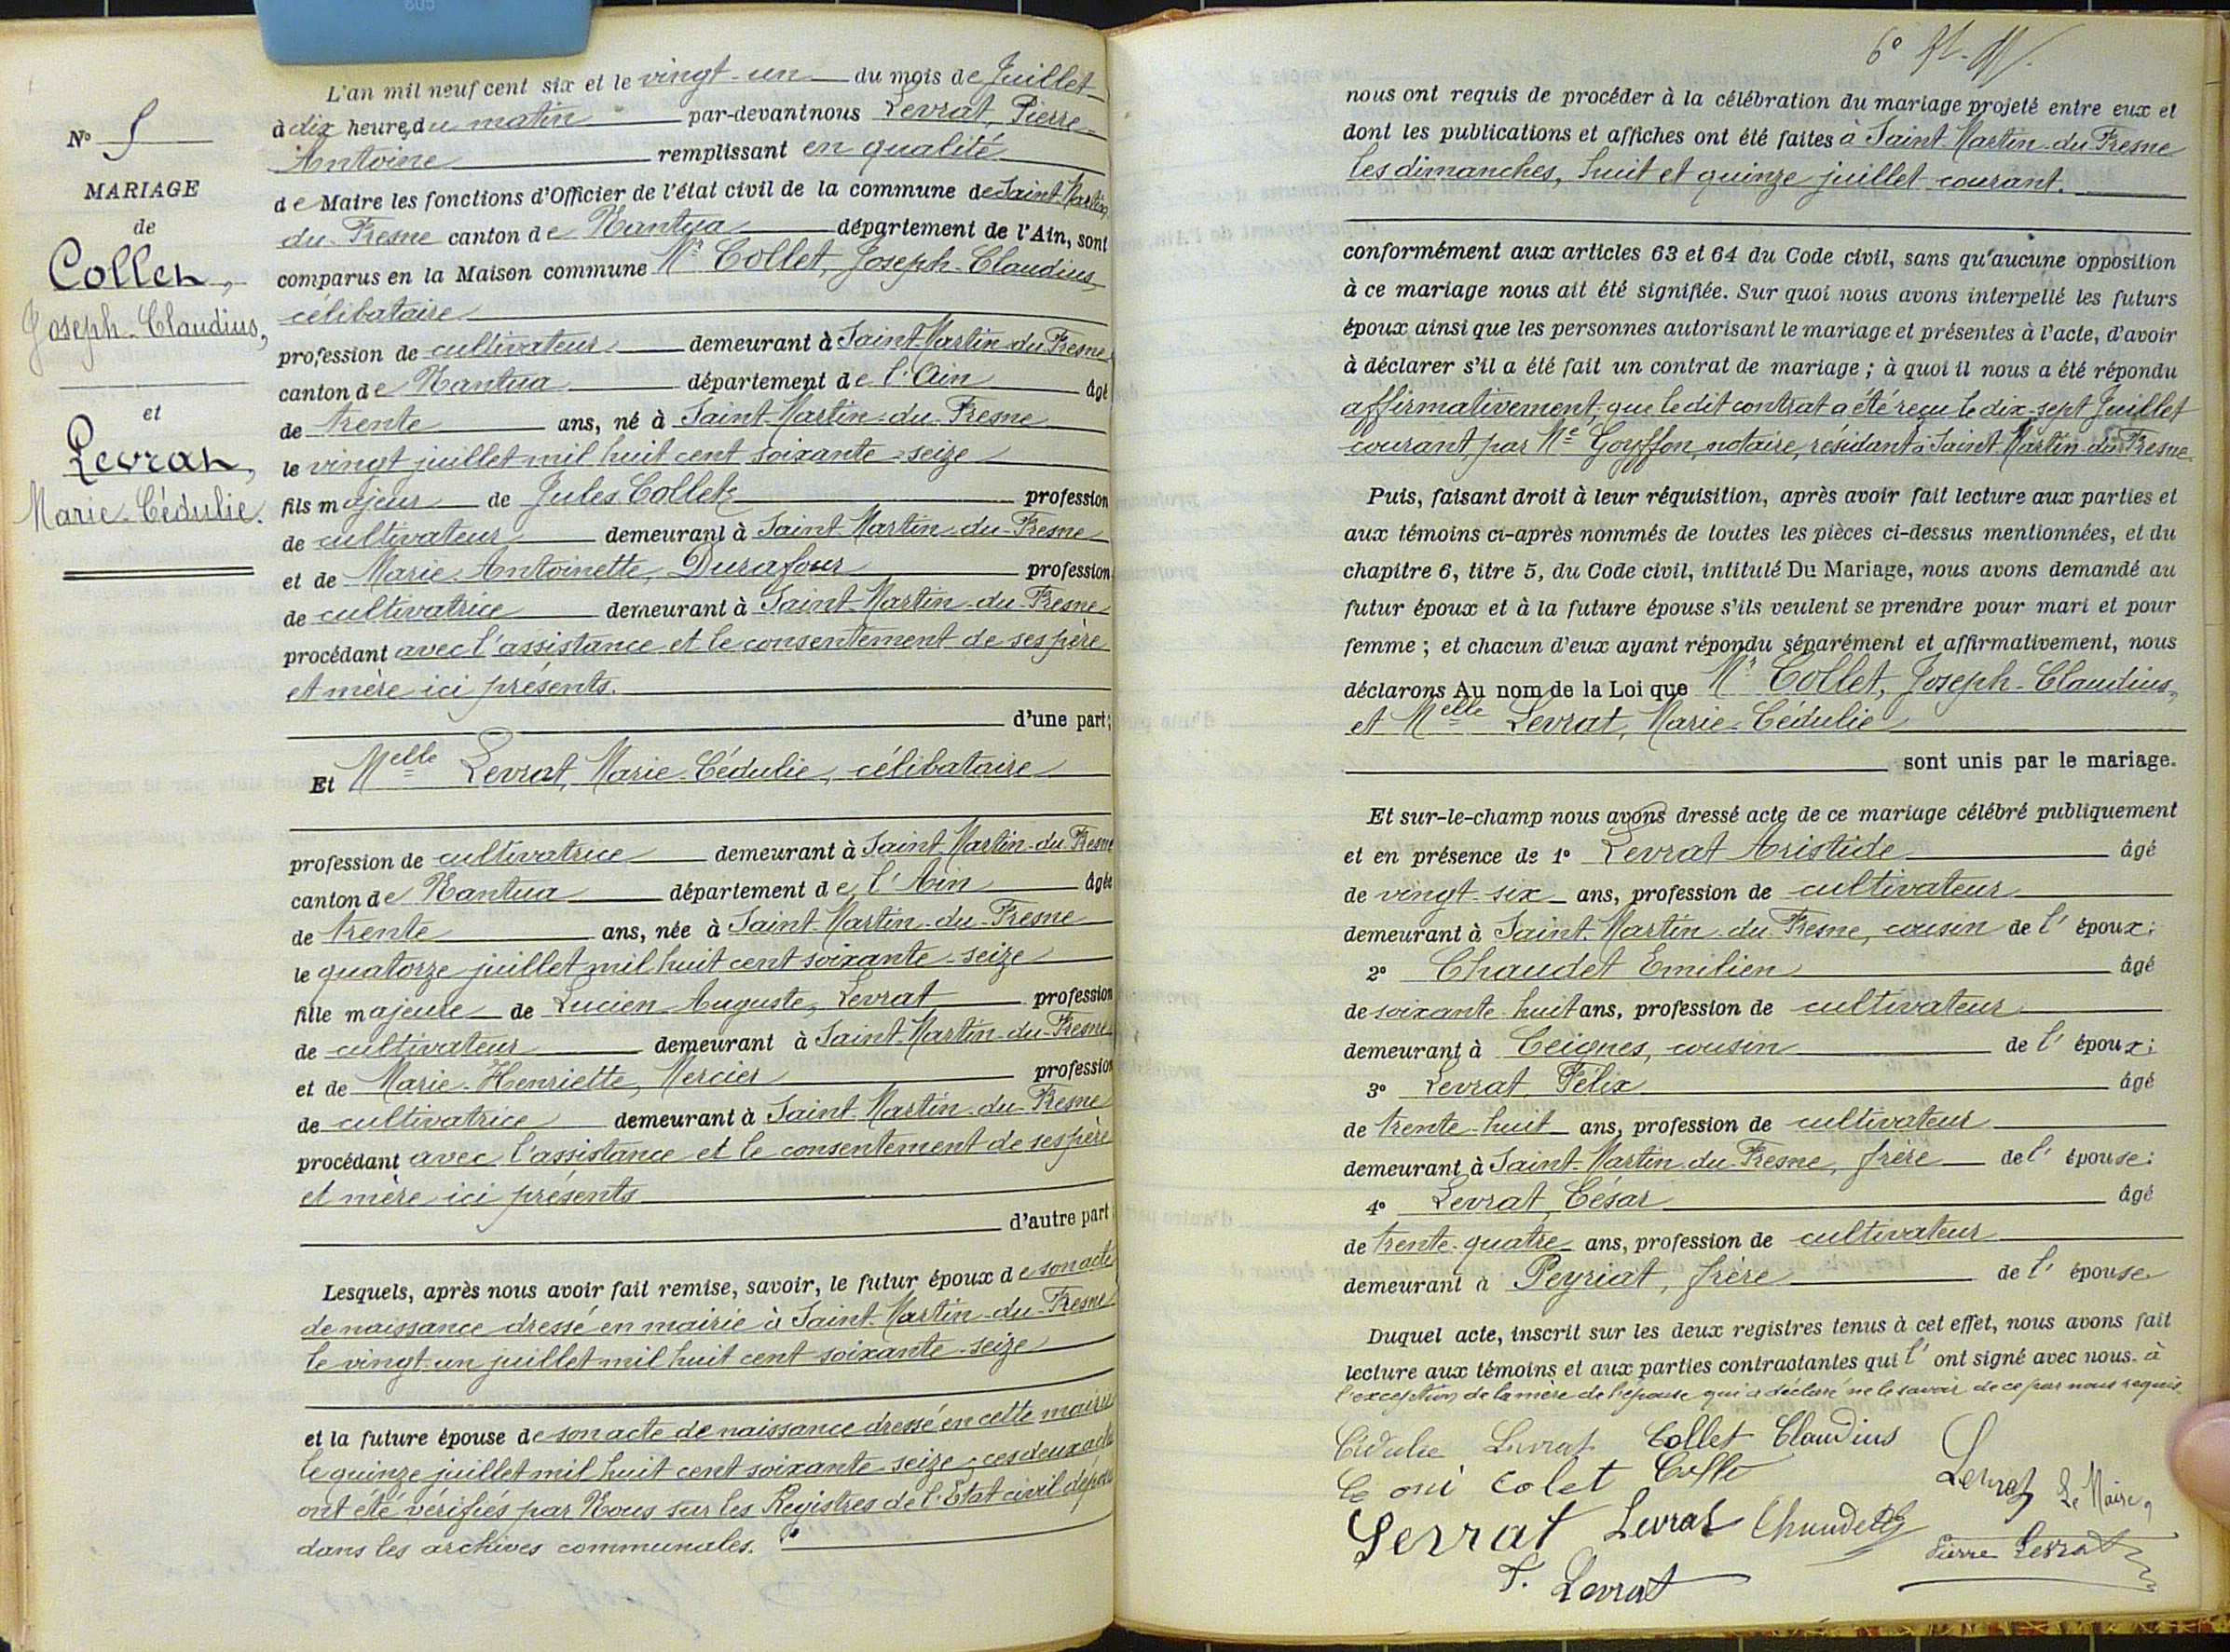 N° 5
MARIAGE
de
Collet,
Joseph-Claudius,
et
Levrat,
Marie-Cédulie.
L'an mil neuf cent six et le vingt-un du mois de Juillet
à dix heures du matin par-devant nous Levrat, Pierre-
Antoine remplissant en qualité
de Maire les fonctions d'Officier de l'état civil de la commune de Saint-Martin
du-Fresne canton de Nantua département de l'Ain, sont
comparus en la Maison commune Mr Collet, Joseph-Claudius,
célibataire
profession de cultivateur demeurant à Saint-Martin-du-Fresne
canton de Nantua département de l'Ain âgé
de trente ans, né à Saint-Martin-du-Fresne
le vingt juillet mil huit cent soixante-seize
fils majeur de Jules Collet profession
de cultivateur demeurant à Saint-Martin-du-Fresne
et de Marie-Antoinette, Durafour profession
de cultivatrice demeurant à Saint-Martin-du-Fresne
procédant avec l'assistance et le consentement de ses père
et mère ici présents.
d'une part;
Et Melle Levrat, Marie-Cédulie, célibataire
profession de cultivatrice demeurant à Saint-Martin-du-Fresne
canton de Nantua département de l'Ain âgée
de trente ans, née à Saint-Martin-du-Fresne
le quatorze juillet mil huit cent soixante-seize
fille majeure de Lucien-Auguste, Levrat profession
de cultivateur demeurant à Saint-Martin-du-Fresne
et de Marie-Henriette, Mercier profession
de cultivatrice demeurant à Saint-Martin-du-Fresne
procédant avec l'assistance et le consentement de ses père
et mère ici présents
d'autre part;
Lesquels, après nous avoir fait remise, savoir, le futur époux de son acte
de naissance dressé en mairie à Saint-Martin-du-Fresne
le vingt-un juillet mil huit cent soixante-seize
et la future épouse de son acte de naissance dressé en cette mairie
le quinze juillet mil huit cent soixante-seize, ces deux actes
ont été vérifiés par Nous sur les Registres de l'Etat civil déposés
dans les archives communales.
6°
nous ont requis de procéder à la célébration du mariage projeté entre eux et
dont les publications et affiches ont été faites à Saint-Martin-du-Fresne
les dimanches, huit et quinze juillet courant.
conformément aux articles 63 et 64 du Code civil, sans qu'aucune opposition
à ce mariage nous ait été signifiée. Sur quoi nous avons interpellé les futurs
époux ainsi que les personnes autorisant le mariage et présentes à l'acte, d'avoir
à déclarer s'il a été fait un contrat de mariage ; à quoi il nous a été répondu
affirmativement, que le dit contrat a été reçu le dix-sept Juillet
courant par Me Goyffon, notaire, résidant à Saint-Martin-du-Fresne.
Puis, faisant droit à leur réquisition, après avoir fait lecture aux parties et
aux témoins ci-après nommés de toutes les pièces ci-dessus mentionnées, et du
chapitre 6, titre 5, du Code civil, intitulé Du Mariage, nous avons demandé au
futur époux et à la future épouse s'ils veulent se prendre pour mari et pour
femme ; et chacun d'eux ayant répondu séparément et affirmativement, nous
déclarons Au nom de la Loi que Mr Collet, Joseph-Claudius,
et Melle Levrat, Marie-Cédulie
sont unis par le mariage.
Et sur-le-champ nous avons dressé acte de ce mariage célébré publiquement
et en présence de 1° Levrat Aristide âgé
de vingt-six ans, profession de cultivateur
demeurant à Saint-Martin-du-Fresne, cousin de l'époux;
2° Chaudet Emilien âgé
de soixante-huit ans, profession de cultivateur
demeurant à Ceignes, cousin de l'époux;
3° Levrat, Félix âgé
de trente-huit ans, profession de cultivateur
demeurant à Saint-Martin-du-Fresne, frère de l'épouse;
4° Levrat, César âgé
de trente-quatre ans, profession de cultivateur
demeurant à Peyriat, frère de l'épouse
Duquel acte, inscrit sur les deux registres tenus à cet effet, nous avons fait
lecture aux témoins et aux parties contractantes qui l'ont signé avec nous. à
l'exception de la mère de l'épouse qui a déclaré ne le savoir de ce par nous requis.
Cédulie Levrat Collet Claudius
colet Collet Levrat Le Maire,
Levrat Levrat Chaudet
Pierre Levrat
F. Levrat